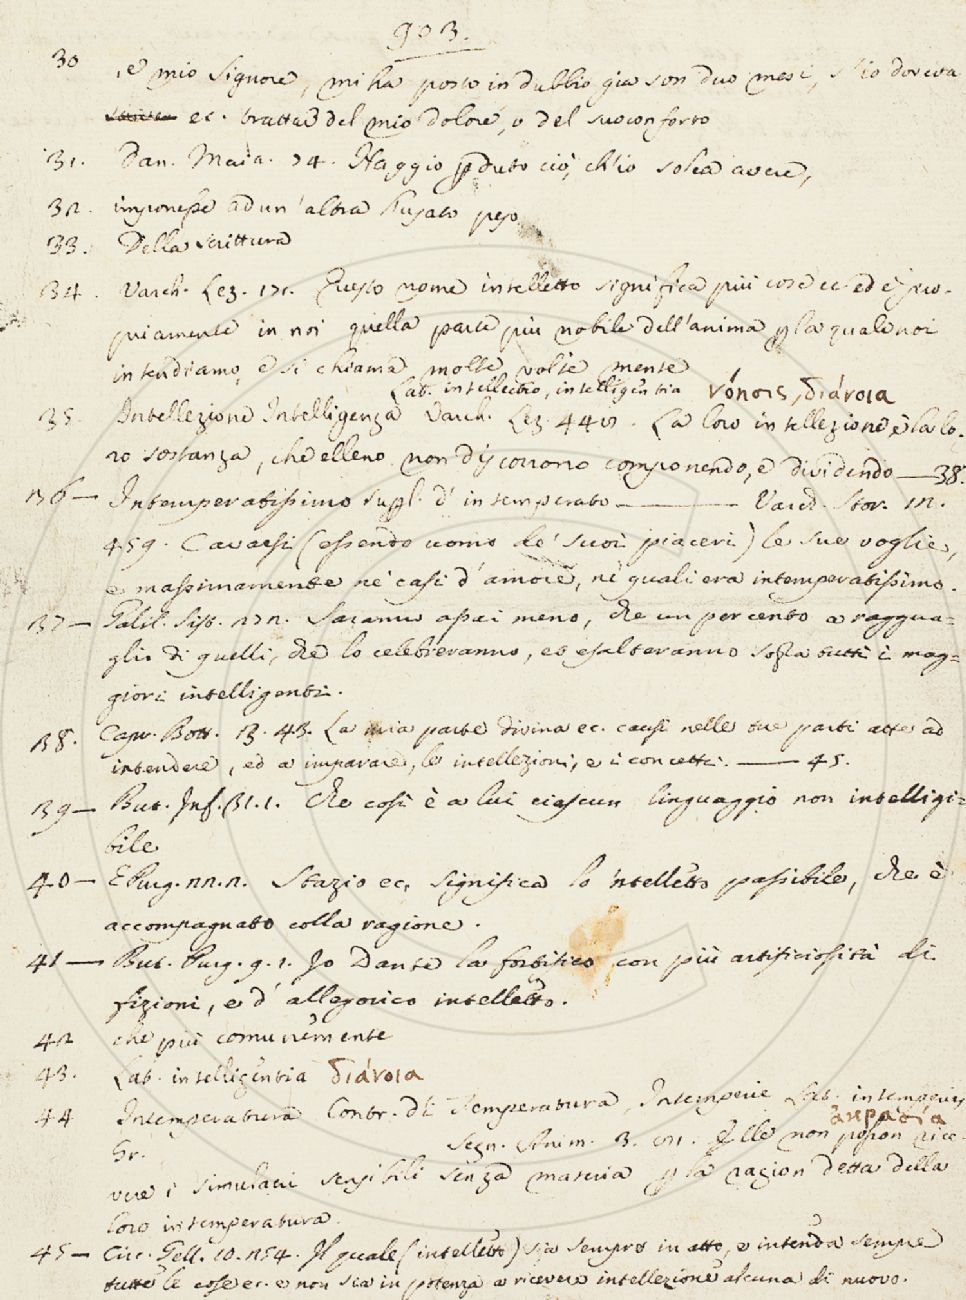 903.
30 , e mio Signore, mi ha posto in dubbio gia son duo mesi, s'io doveva
ec. trattar del mio dolore, o del suo conforto
31. Dan. Maia. 74. Haggio pduto ciò, ch'io solea avere,
32. imporesse ad un'altra usato peso
33. Della scrittura
34. Varch. Lez. 171. Questo nome intelletto significa più cose ec. ed è pro-
priamente in noi quella parte più nobile dell'anima p la quale noi
intendiamo, e si chiama molte volte mente
Lat. intellectio, intelligentia νόησις, διάνοια
35. Intellezione Intelligenza Varch. Lez. 44 La loro intellezione è la lo-
ro sostanza, che elleno non discorrono componendo, e dividendo — 38.
36 — Intemperatissimo supl. d'intemperato — Varch. Stor. 12.
459. Cavarsi (essendo uomo de' suoi piaceri) le sue voglie,
e massimamente ne' casi d'amore, ne' quali era intemperatissimo.
37 — Galil. Sist. 272. Saranno assai meno, che un per cento a raggua-
glio di quelli, che lo celebreranno, ed esalteranno sopra tutti i mag-
giori intelligenti.
38. Capr. Bott. 3. 43. La mia parte divina ec. causi nelle tue parti atte ad
intendere, ed a imparare, le intellezioni, e i concetti. — 45.
39 — But. Inf. 31. 1. Che così è a lui ciascun linguaggio non intelligi-
bile
40 — E Purg. 22. 2. Stazio ec. significa lo 'ntelletto possibile, che è
accompagnato colla ragione.
41 — But. Purg. 9. 1. Io Dante la fortifico con più artificiosità di
fizioni, e d'allegorico intelletto.
42 che più comunemente
43. Lat. intelligentia διάνοια
44 Intemperatura Contr. di Temperatura, Intemperie Lat. intemperies
Gr. ἀκρασία
Segn. Anim. 3. Elle non posson rice-
vere i simulacri sensibili senza materia p la ragion detta della
loro intemperatura.
45 — Circ. Gell. 10. 254. Il quale (intelletto) sia sempre in atto, e intenda sempre
tutte le cose ec. e non sia in potenza a ricevere intellezione alcuna di nuovo.